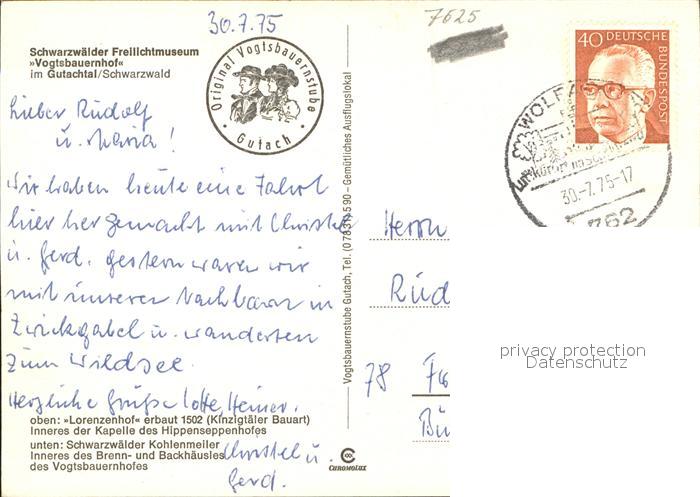 30.7.75
7625
Schwarzwälder Freilichtmuseum
»Vogtsbauernhof«
im Gutachtal/Schwarzwald
Original Vogtsbauernstube
Gutach
Lieber Rudolf
u. Maria!
Wir haben heute eine Fahrt
hier her gemacht mit Christel
u. Gerd. Gestern waren wir
mit unseren Nachbarn in
Zwickgabel u. wanderten
zum Wildsee.
Herzliche Grüße Lotte, Heiner,
Christel u.
Gerd.
oben: »Lorenzenhof« erbaut 1502 (Kinzigtäler Bauart)
Inneres der Kapelle des Hippenseppenhofes
unten: Schwarzwälder Kohlenmeiler
Inneres des Brenn- und Backhäusles
des Vogtsbauernhofes
CHROMOLUX
Vogtsbauernstube Gutach, Tel. (07831) 590 – Gemütliches Ausflugslokal
40 DEUTSCHE
BUNDESPOST
WOLFA
Luftkurort
30.-7.75-17
762
Herrn
Rud
78
Bü
privacy protection
Datenschutz